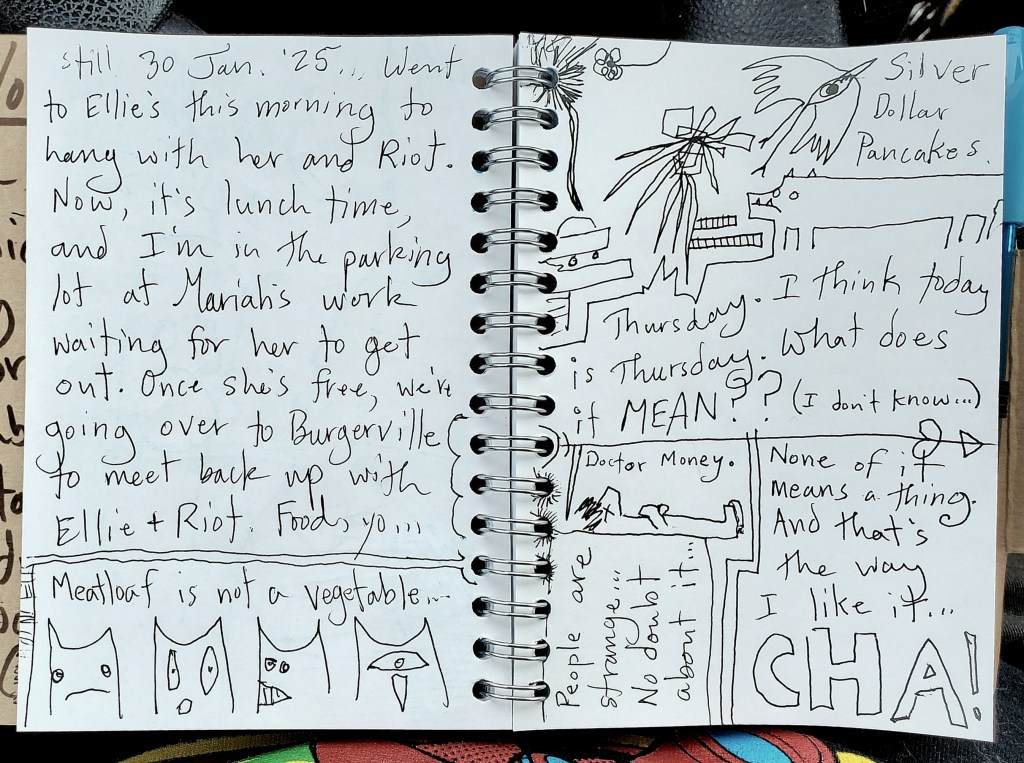 still 30 Jan. '25... Went
to Ellie's this morning to
hang with her and Riot.
Now, it's lunch time,
and I'm in the parking
lot at Mariah's work
waiting for her to get
out. Once she's free, we're
going over to Burgerville
to meet back up with
Ellie + Riot. Food, yo...
Meatloaf is not a vegetable...
Silver
Dollar
Pancakes.
Thursday. I think today
is Thursday. What does
it MEAN?? (I don't know...)
Doctor Money.
People are
strange...
No doubt
about it...
None of it
means a thing.
And that's
the way
I like it...
CHA!